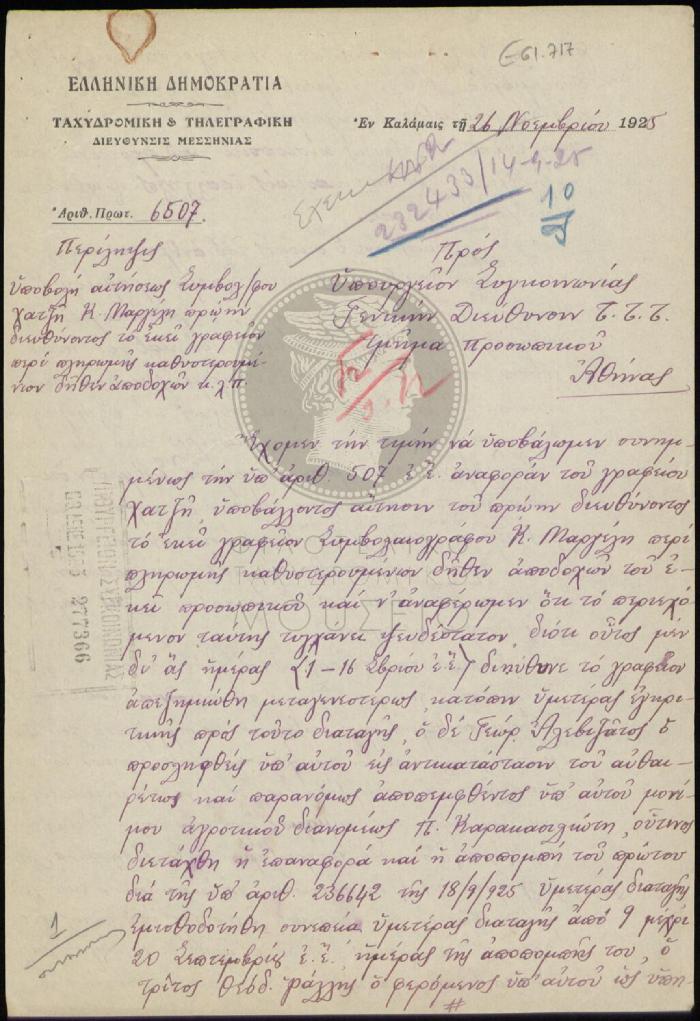 E-61.717
ΕΛΛΗΝΙΚΗ ΔΗΜΟΚΡΑΤΙΑ
ΤΑΧΥΔΡΟΜΙΚΗ & ΤΗΛΕΓΡΑΦΙΚΗ
ΔΙΕΥΘΥΝΣΙΣ ΜΕΣΣΗΝΙΑΣ
Ἐν Καλάμαις τῇ 26 Νοεμβρίου 1925
232433/14-4-25
10
Ἀριθ. Πρωτ. 6507.
Περίληψις
ὑποβολὴ αἰτήσεως Συμβολ/φου
Χατζῆ Κ. Μαργέλη πρώην
διευθύνοντος τὸ ἐκεῖ γραφεῖον
περὶ πληρωμῆς καθυστερουμέ-
νων δῆθεν ἀποδοχῶν κ.λ.π.
Πρὸς
Ὑπουργεῖον Συγκοινωνίας
Γενικὴν Διεύθυνσιν Τ.Τ.Τ.
Τμῆμα προσωπικοῦ
Ἀθήνας
Ἔχομεν τὴν τιμὴν νὰ ὑποβάλωμεν συνημ-
μένως τὴν ὑπ' ἀριθ. 507 ἐ.ἔ. ἀναφορὰν τοῦ γραφείου
Χατζῆ, ὑποβάλλοντος αἴτησιν τοῦ πρώην διευθύνοντος
τὸ ἐκεῖ γραφεῖον Συμβολαιογράφου Κ. Μαργέλη περὶ
πληρωμῆς καθυστερουμένων δῆθεν ἀποδοχῶν τοῦ ἐ-
κεῖ προσωπικοῦ καὶ ν' ἀναφέρωμεν ὅτι τὸ περιεχό-
μενον ταύτης τυγχάνει ψευδέστατον, διότι οὗτος μὲν
δι' ἃς ἡμέρας (1-16 Σ)βρίου ἐ.ἔ.) διηύθυνε τὸ γραφεῖον
ἀπεζημιώθη μεταγενεστέρως κατόπιν ὑμετέρας ἐγκρι-
τικῆς πρὸς τοῦτο διαταγῆς, ὁ δὲ Γεώρ. Ἀλεβιζᾶτος ὁ
προσληφθεὶς ὑπ' αὐτοῦ εἰς ἀντικατάστασιν τοῦ αὐθαι-
ρέτως καὶ παρανόμως ἀποπεμφθέντος ὑπ' αὐτοῦ μονί-
μου ἀγροτικοῦ διανομέως Π. Καρακασιλιώτη, οὗτινος
διετάχθη ἡ ἐπαναφορὰ καὶ ἡ ἀποπομπὴ τοῦ πρώτου
διὰ τῆς ὑπ' ἀριθ. 236642 τῆς 18/9/925 ὑμετέρας διαταγῆς
ἐμισθοδοτήθη συνεπείᾳ ὑμετέρας διαταγῆς ἀπὸ 9 μέχρι
20 Σεπτεμβρίου ἐ.ἔ. ἡμέρας τῆς ἀποπομπῆς του, ὁ
τρίτος Θεόδ. Ράλλης ὁ φερόμενος ὑπ' αὐτοῦ ὡς ὑπη-
#
1
ΥΠΟΥΡΓΕΙΟΝ ΣΥΓΚΟΙΝΩΝΙΑΣ
277366
ΜΟΥΣΕΙΟ